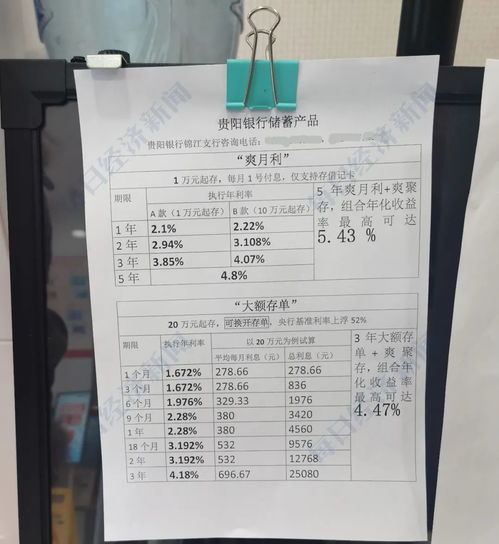 贵阳银行储蓄产品
贵阳银行锦江支行咨询电话:
“爽月利”
1 万元起存，每月 1 号付息，仅支持存借记卡
期限 执行年利率
A 款（1 万元起存） B 款（10 万元起存）
1 年 2.1% 2.22%
2 年 2.94% 3.108%
3 年 3.85% 4.07%
5 年 4.8%
5 年爽月利+爽聚
存，组合年化收益
率最高可达
5.43 %
“大额存单”
20 万元起存，可换开存单，央行基准利率上浮 52%
期限 执行年利率 以 20 万元为例试算
平均每月利息（元） 总利息（元）
1 个月 1.672% 278.66 278.66
3 个月 1.672% 278.66 836
6 个月 1.976% 329.33 1976
9 个月 2.28% 380 3420
1 年 2.28% 380 4560
18 个月 3.192% 532 9576
2 年 3.192% 532 12768
3 年 4.18% 696.67 25080
3 年大额存
单 + 爽聚
存，组合年
化收益率
最高可达
4.47%
每日经济新闻
每日经济新闻